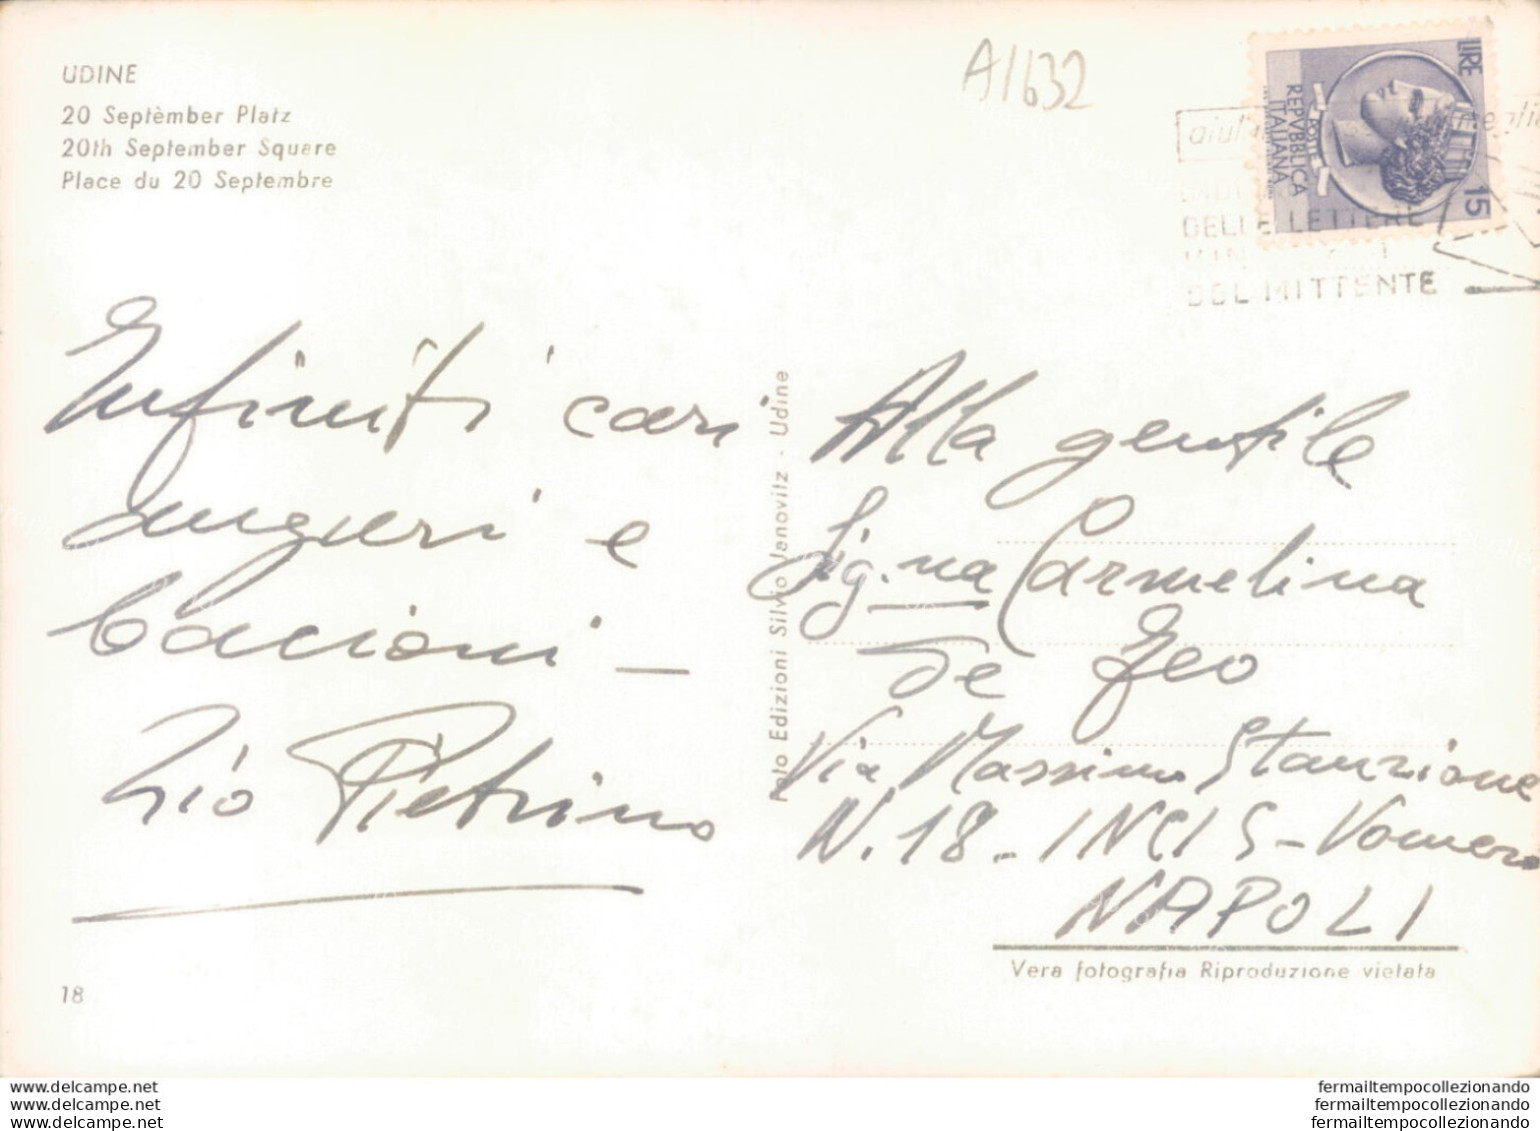 UDINE
20 Septèmber Platz
20th September Square
Place du 20 Septembre
A1632
LIRE 15
POSTE
REPVBBLICA
ITALIANA
DELLE LETTERE
DEL MITTENTE
Infiniti cari
auguri e
bacioni —
Zio Pietrino
Foto Edizioni Silvio Janovitz - Udine
Alla gentile
Sig.na Carmelina
De Zeo
Via Massimo Stanzione
N. 18 - INCIS - Vomero
NAPOLI
Vera fotografia Riproduzione vietata
18
www.delcampe.net
www.delcampe.net
www.delcampe.net
fermailtempocollezionando
fermailtempocollezionando
fermailtempocollezionando